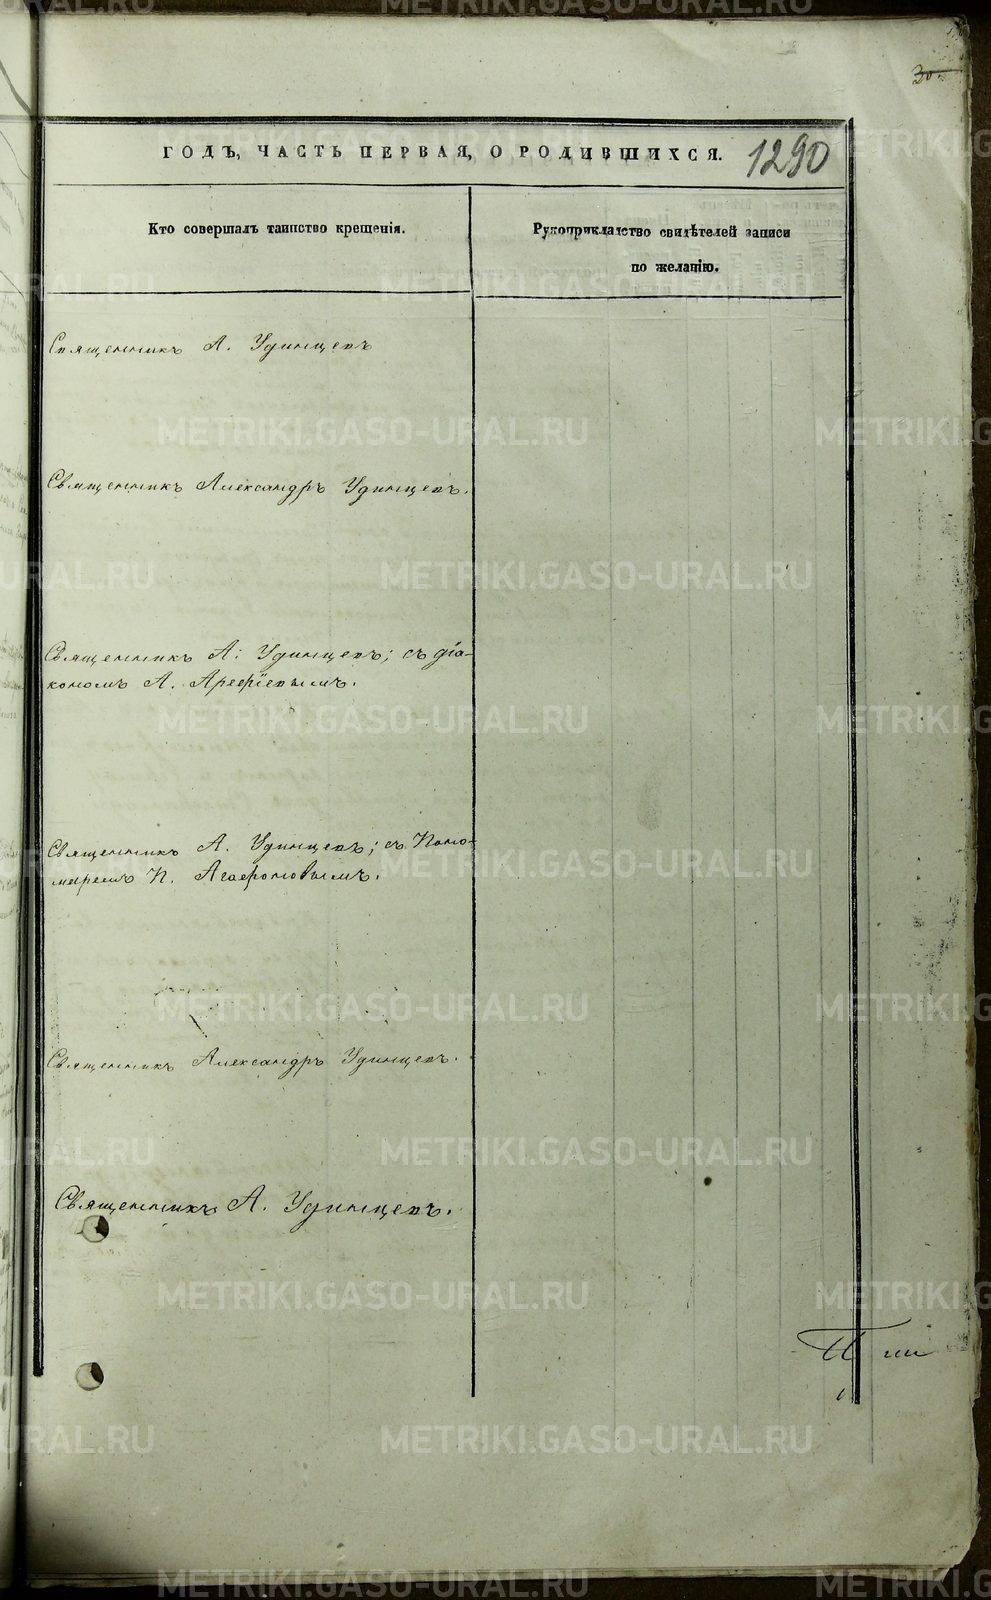 30.
ГОДЪ, ЧАСТЬ ПЕРВАЯ, О РОДИВШИХСЯ. 1290
Кто совершалъ таинство крещенія.
Рукоприкладство свидѣтелей записи
по желанію.
Священникъ А. Удинцевъ
Священникъ Александръ Удинцевъ.
Священникъ А: Удинцевъ; съ діа-
кономъ А. Арефіевымъ.
Священникъ А. Удинцевъ; съ Поно-
маремъ И. Агафоновымъ.
Священникъ Александръ Удинцевъ.
Священникъ А. Удинцевъ.
METRIKI.GASO-URAL.RU